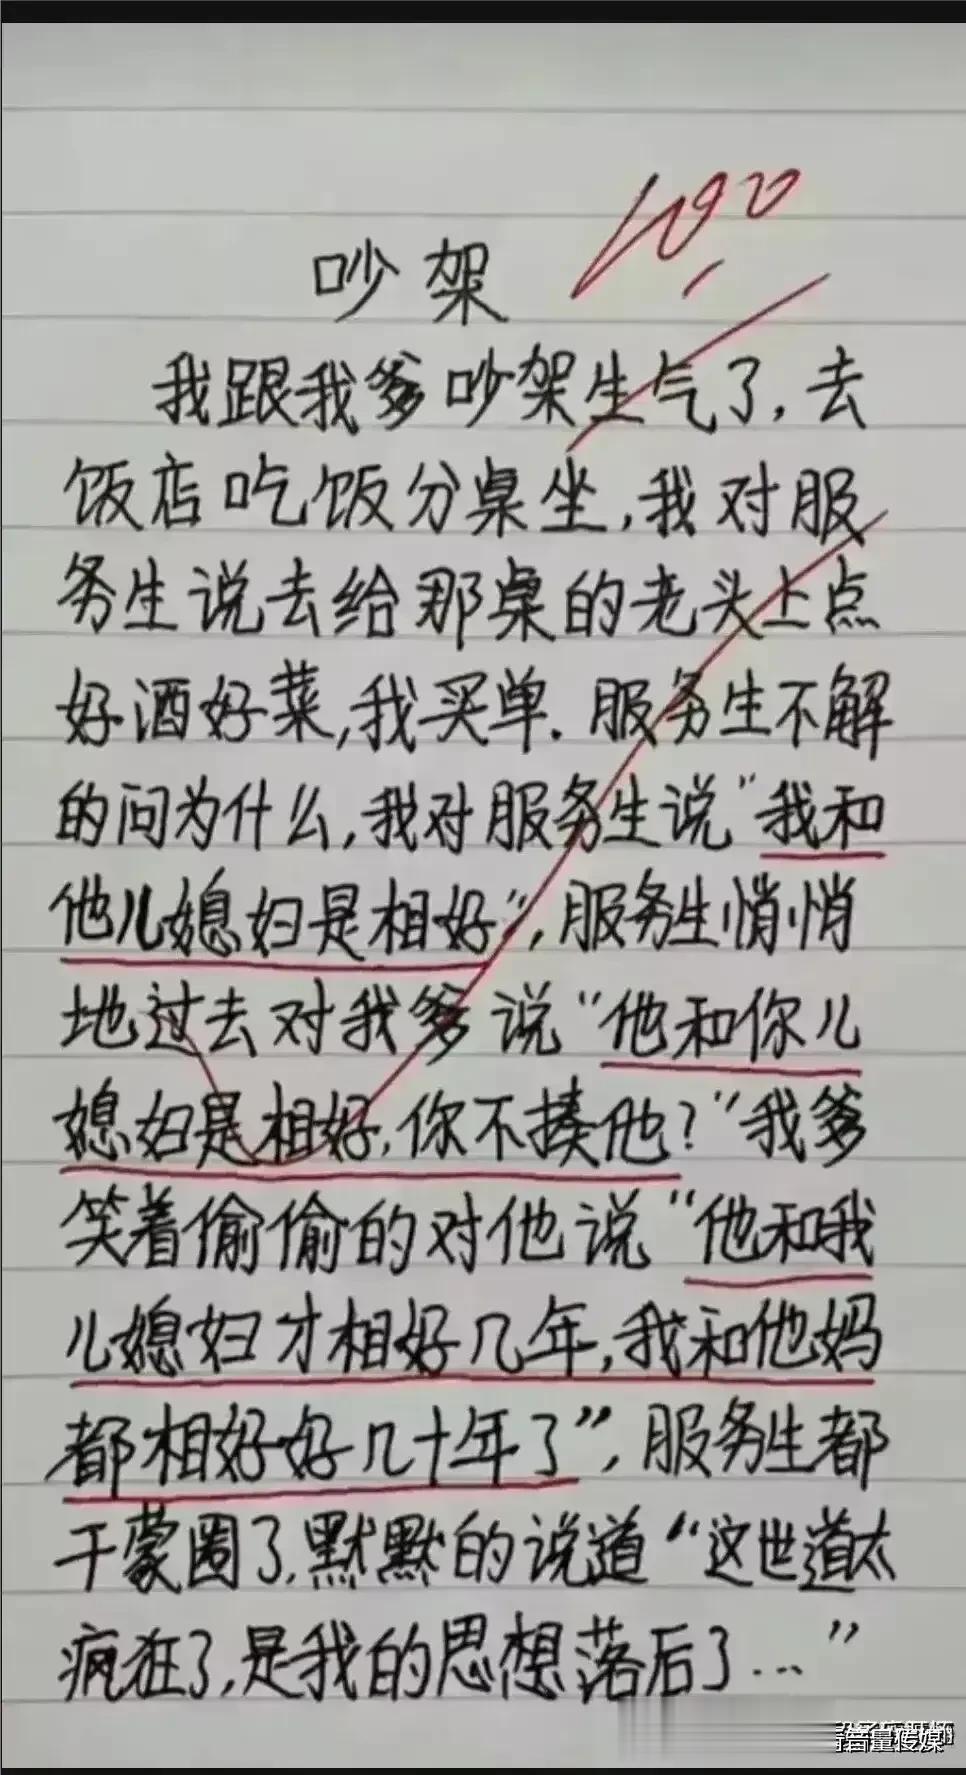 100
吵架
我跟我爹吵架生气了,去
饭店吃饭分桌坐,我对服
务生说去给那桌的老头上点
好酒好菜,我买单.服务生不解
的问为什么,我对服务生说"我和
他儿媳妇是相好",服务生悄悄
地过去对我爹说"他和你儿
媳妇是相好,你不揍他?"我爹
笑着偷偷的对他说"他和我
儿媳妇才相好几年,我和他妈
都相好好几十年了",服务生都
干蒙圈了.默默的说道"这世道太
疯狂了,是我的思想落后了..."
音量传媒